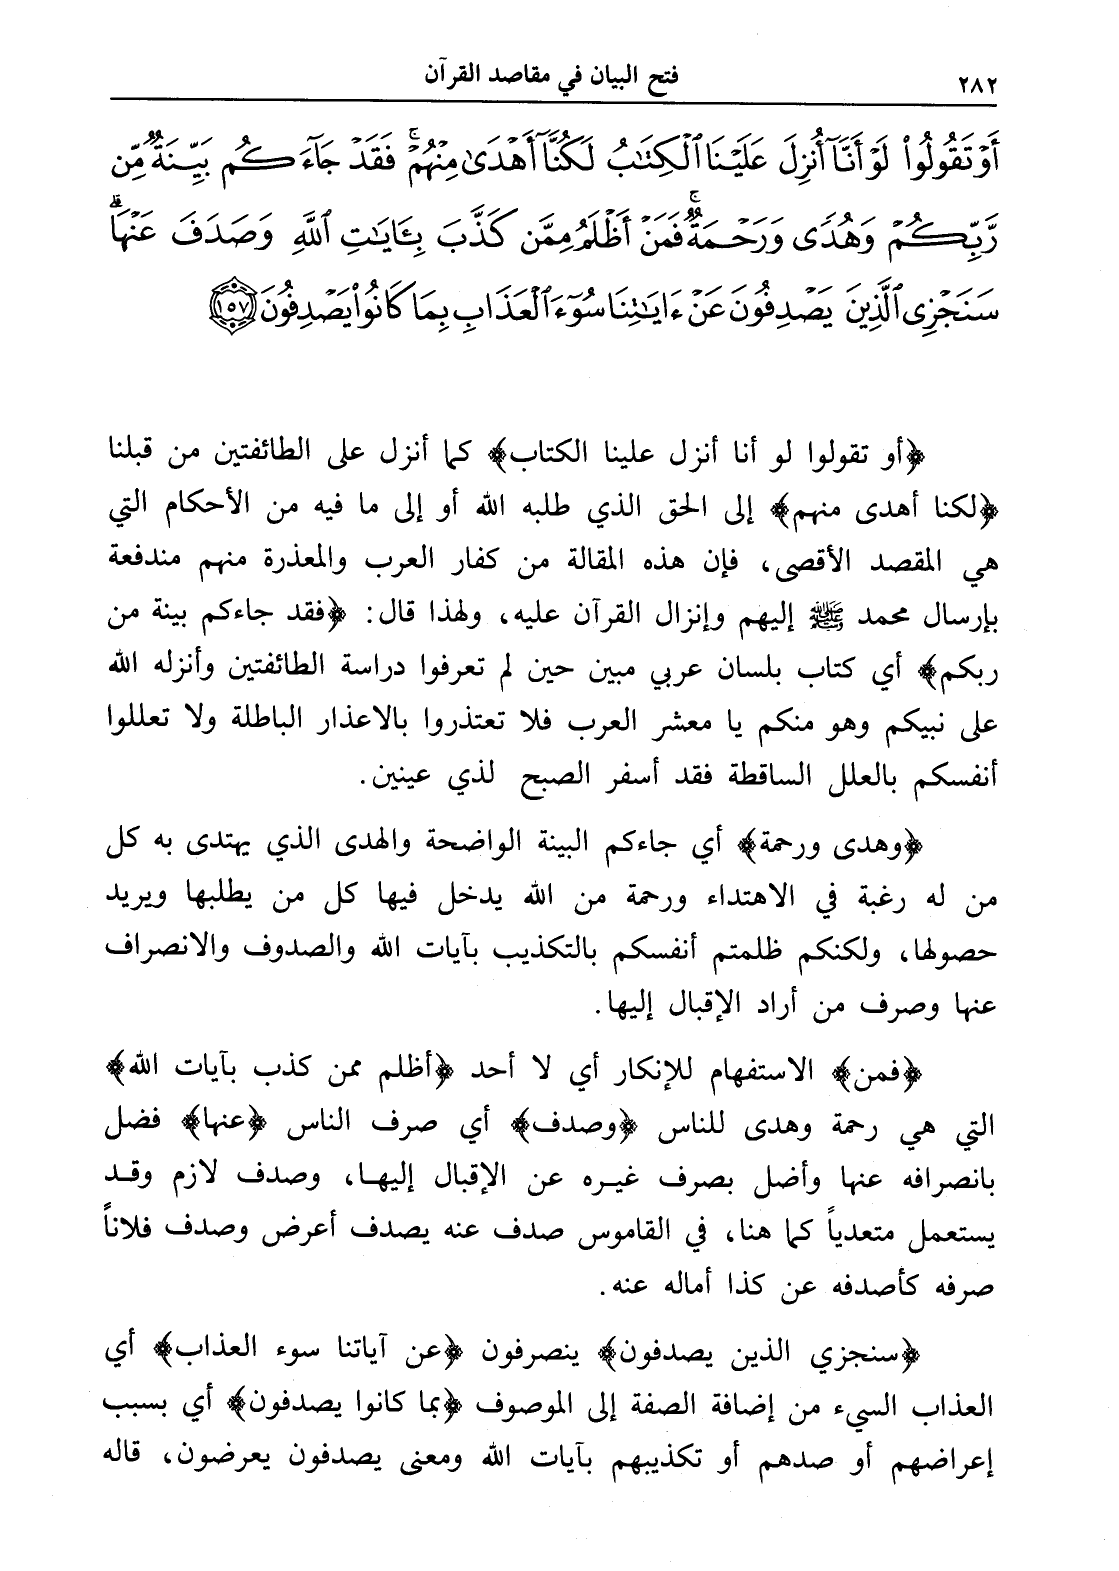 ٢٨٢
فتح البيان في مقاصد القرآن
أَوْ تَقُولُوا۟ لَوْ أَنَّآ أُنزِلَ عَلَيْنَا ٱلْكِتَٰبُ لَكُنَّآ أَهْدَىٰ مِنْهُمْ ۚ فَقَدْ جَآءَكُم بَيِّنَةٌ مِّن
رَّبِّكُمْ وَهُدًى وَرَحْمَةٌ ۚ فَمَنْ أَظْلَمُ مِمَّن كَذَّبَ بِـَٔايَٰتِ ٱللَّهِ وَصَدَفَ عَنْهَا ۗ
سَنَجْزِى ٱلَّذِينَ يَصْدِفُونَ عَنْ ءَايَٰتِنَا سُوٓءَ ٱلْعَذَابِ بِمَا كَانُوا۟ يَصْدِفُونَ ١٥٧
﴿أو تقولوا لو أنا أنزل علينا الكتاب﴾ كما أنزل على الطائفتين من قبلنا
﴿لكنا أهدى منهم﴾ إلى الحق الذي طلبه الله أو إلى ما فيه من الأحكام التي
هي المقصد الأقصى، فإن هذه المقالة من كفار العرب والمعذرة منهم مندفعة
بإرسال محمد ﷺ إليهم وإنزال القرآن عليه، ولهذا قال: ﴿فقد جاءكم بينة من
ربكم﴾ أي كتاب بلسان عربي مبين حين لم تعرفوا دراسة الطائفتين وأنزله الله
على نبيكم وهو منكم يا معشر العرب فلا تعتذروا بالاعذار الباطلة ولا تعللوا
أنفسكم بالعلل الساقطة فقد أسفر الصبح لذي عينين.
﴿وهدى ورحمة﴾ أي جاءكم البينة الواضحة والهدى الذي يهتدى به كل
من له رغبة في الاهتداء ورحمة من الله يدخل فيها كل من يطلبها ويريد
حصولها، ولكنكم ظلمتم أنفسكم بالتكذيب بآيات الله والصدوف والانصراف
عنها وصرف من أراد الإقبال إليها.
﴿فمن﴾ الاستفهام للإنكار أي لا أحد ﴿أظلم ممن كذب بآيات الله﴾
التي هي رحمة وهدى للناس ﴿وصدف﴾ أي صرف الناس ﴿عنها﴾ فضل
بانصرافه عنها وأضل بصرف غيره عن الإقبال إليها، وصدف لازم وقد
يستعمل متعدياً كما هنا، في القاموس صدف عنه يصدف أعرض وصدف فلاناً
صرفه كأصدفه عن كذا أماله عنه.
﴿سنجزي الذين يصدفون﴾ ينصرفون ﴿عن آياتنا سوء العذاب﴾ أي
العذاب السيء من إضافة الصفة إلى الموصوف ﴿بما كانوا يصدفون﴾ أي بسبب
إعراضهم أو صدهم أو تكذيبهم بآيات الله ومعنى يصدفون يعرضون، قاله